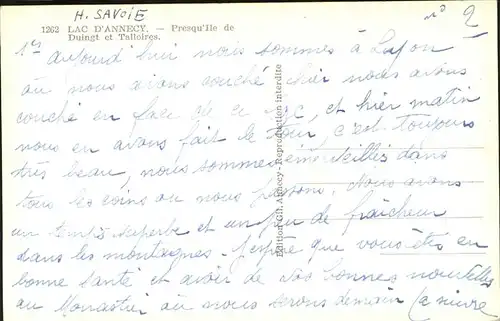 H. SAVOIE
n° 2
1262 LAC D'ANNECY. — Presqu'Ile de
Duingt et Talloires.
aujourd'hui nous sommes à Lyon
où nous avons couché hier nous avons
couché en face de ce lac, et hier matin
nous en avons fait le tour, c'est toujours
très beau, nous sommes émerveillés dans
tous les coins où nous passons. Nous avons
un temps superbe et un peu de fraîcheur
dans les montagnes. J'espère que vous êtes en
bonne santé et avoir de vos bonnes nouvelles
au Monastier où nous serons demain (à suivre
Edition Gil. Annecy - Reproduction interdite